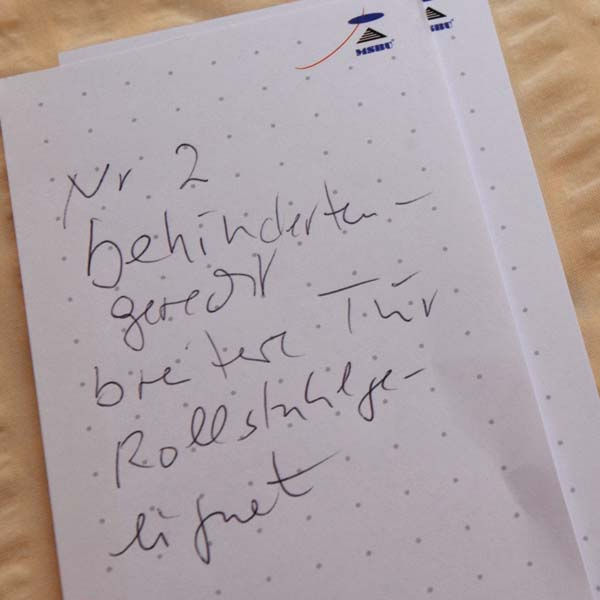 MSBU
SBU
Nr 2
behinderten-
gerecht
breitere Tür
Rollstuhlge-
eignet